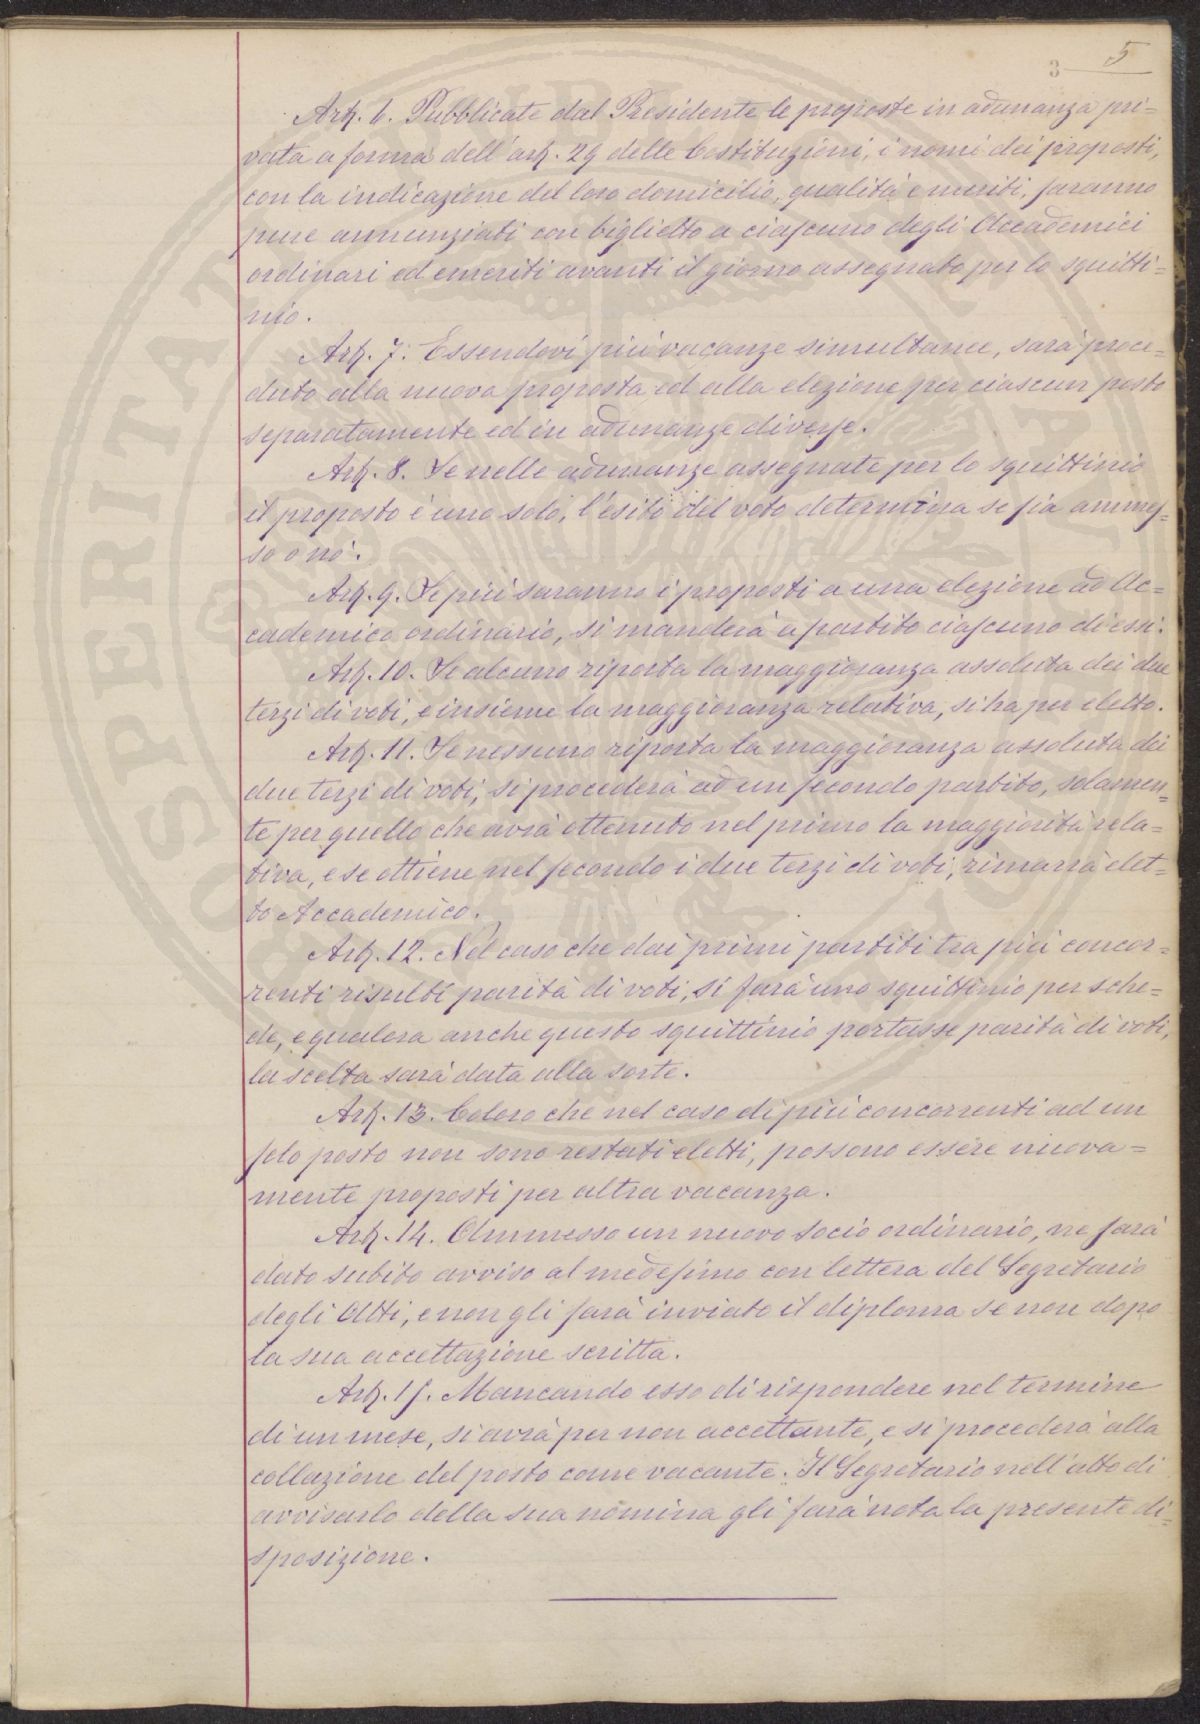 3 5
Art. 6. Pubblicate dal Presidente le proposte in adunanza pri=
vata a forma dell'art. 29 delle Costituzioni, i nomi dei proposti,
con la indicazione del loro domicilio, qualità e meriti, saranno
pure annunziati con biglietto a ciascuno degli Accademici
ordinari ed emeriti avanti il giorno assegnato per lo squitti=
nio.
Art. 7. Essendovi più vacanze simultanee, sarà proce=
duto alla nuova proposta ed alla elezione per ciascun posto
separatamente ed in adunanze diverse.
Art. 8. Se nelle adunanze assegnate per lo squittinio
il proposto è uno solo, l'esito del voto determina se sia ammes=
so o nò.
Art. 9. Se più saranno i proposti a una elezione ad Ac=
cademico ordinario, si manderà a partito ciascuno di essi.
Art. 10. Se alcuno riporta la maggioranza assoluta dei due
terzi di voti, e insieme la maggioranza relativa, si ha per eletto.
Art. 11. Se nessuno riporta la maggioranza assoluta dei
due terzi di voti, si procederà ad un secondo partito, solamen=
te per quello che avrà ottenuto nel primo la maggiorità rela=
tiva, e se ottiene nel secondo i due terzi di voti, rimarrà elet=
to Accademico.
Art. 12. Nel caso che dai primi partiti tra più concor=
renti risulti parità di voti, si farà uno squittinio per sche=
de, e qualora anche questo squittinio portasse parità di voti,
la scelta sarà data alla sorte.
Art. 13. Coloro che nel caso di più concorrenti ad un
solo posto non sono restati eletti, possono essere nuova=
mente proposti per altra vacanza.
Art. 14. Ammesso un nuovo socio ordinario, ne sarà
dato subito avviso al medesimo con lettera del Segretario
degli Atti, e non gli sarà inviato il diploma se non dopo
la sua accettazione scritta.
Art. 15. Mancando esso di rispondere nel termine
di un mese, si avrà per non accettante, e si procederà alla
collazione del posto come vacante. Il Segretario nell'atto di
avvisarlo della sua nomina gli farà nota la presente di=
sposizione.